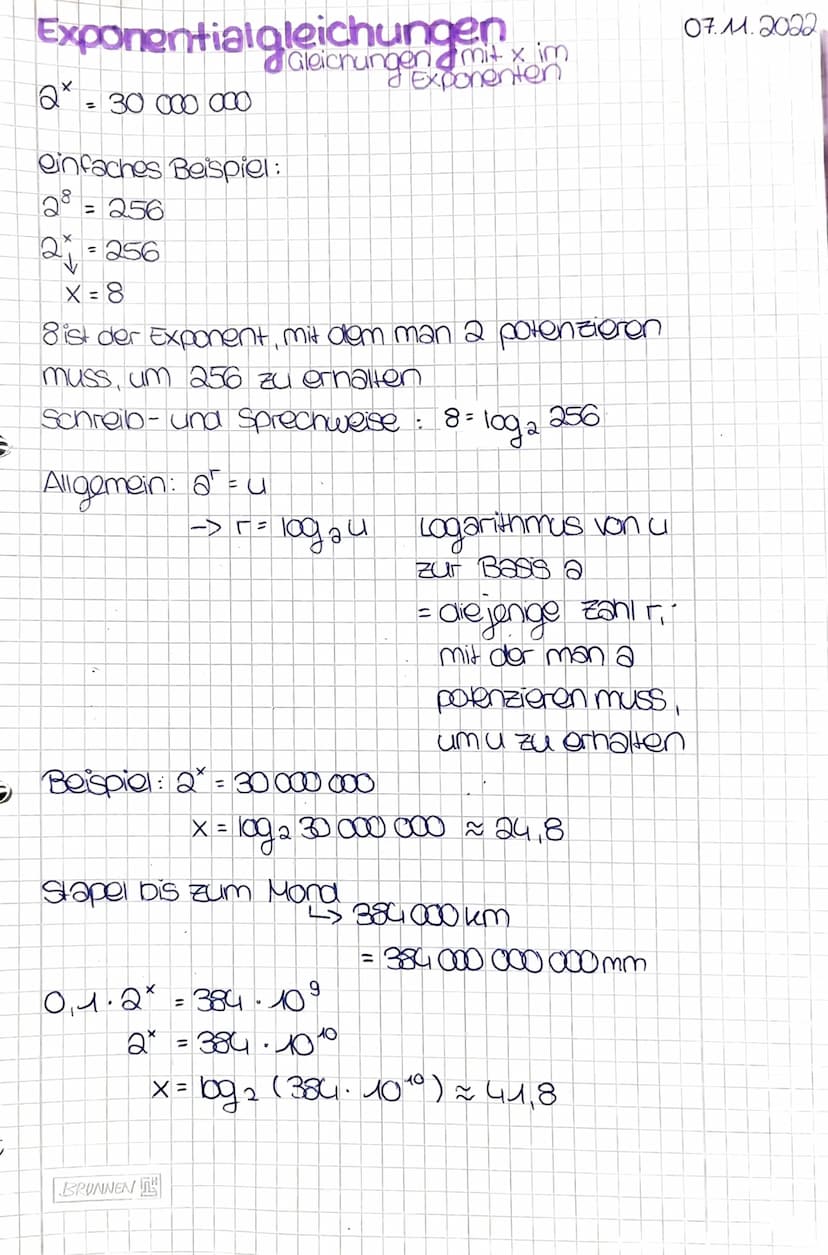 Exponentialgleichungen 07.11.2022
Gleichungen mit x im
Exponenten
2^x = 30 000 000
einfaches Beispiel:
2^8 = 256
2^x = 256
↓
x = 8
8 ist der Exponent, mit dem man 2 potenzieren
muss, um 256 zu erhalten
Schreib- und Sprechweise : 8 = log₂ 256
Allgemein: a^r = u
-> r = logₐ u Logarithmus von u
zur Basis a
= diejenige Zahl r,
mit der man a
potenzieren muss,
um u zu erhalten
Beispiel: 2^x = 30 000 000
x = log₂ 30 000 000 ≈ 24,8
Stapel bis zum Mond
↳ 384 000 km
= 384 000 000 000 mm
0,1 · 2^x = 384 · 10^9
2^x = 384 · 10^10
x = log₂ (384 · 10^10) ≈ 41,8
BRUNNEN